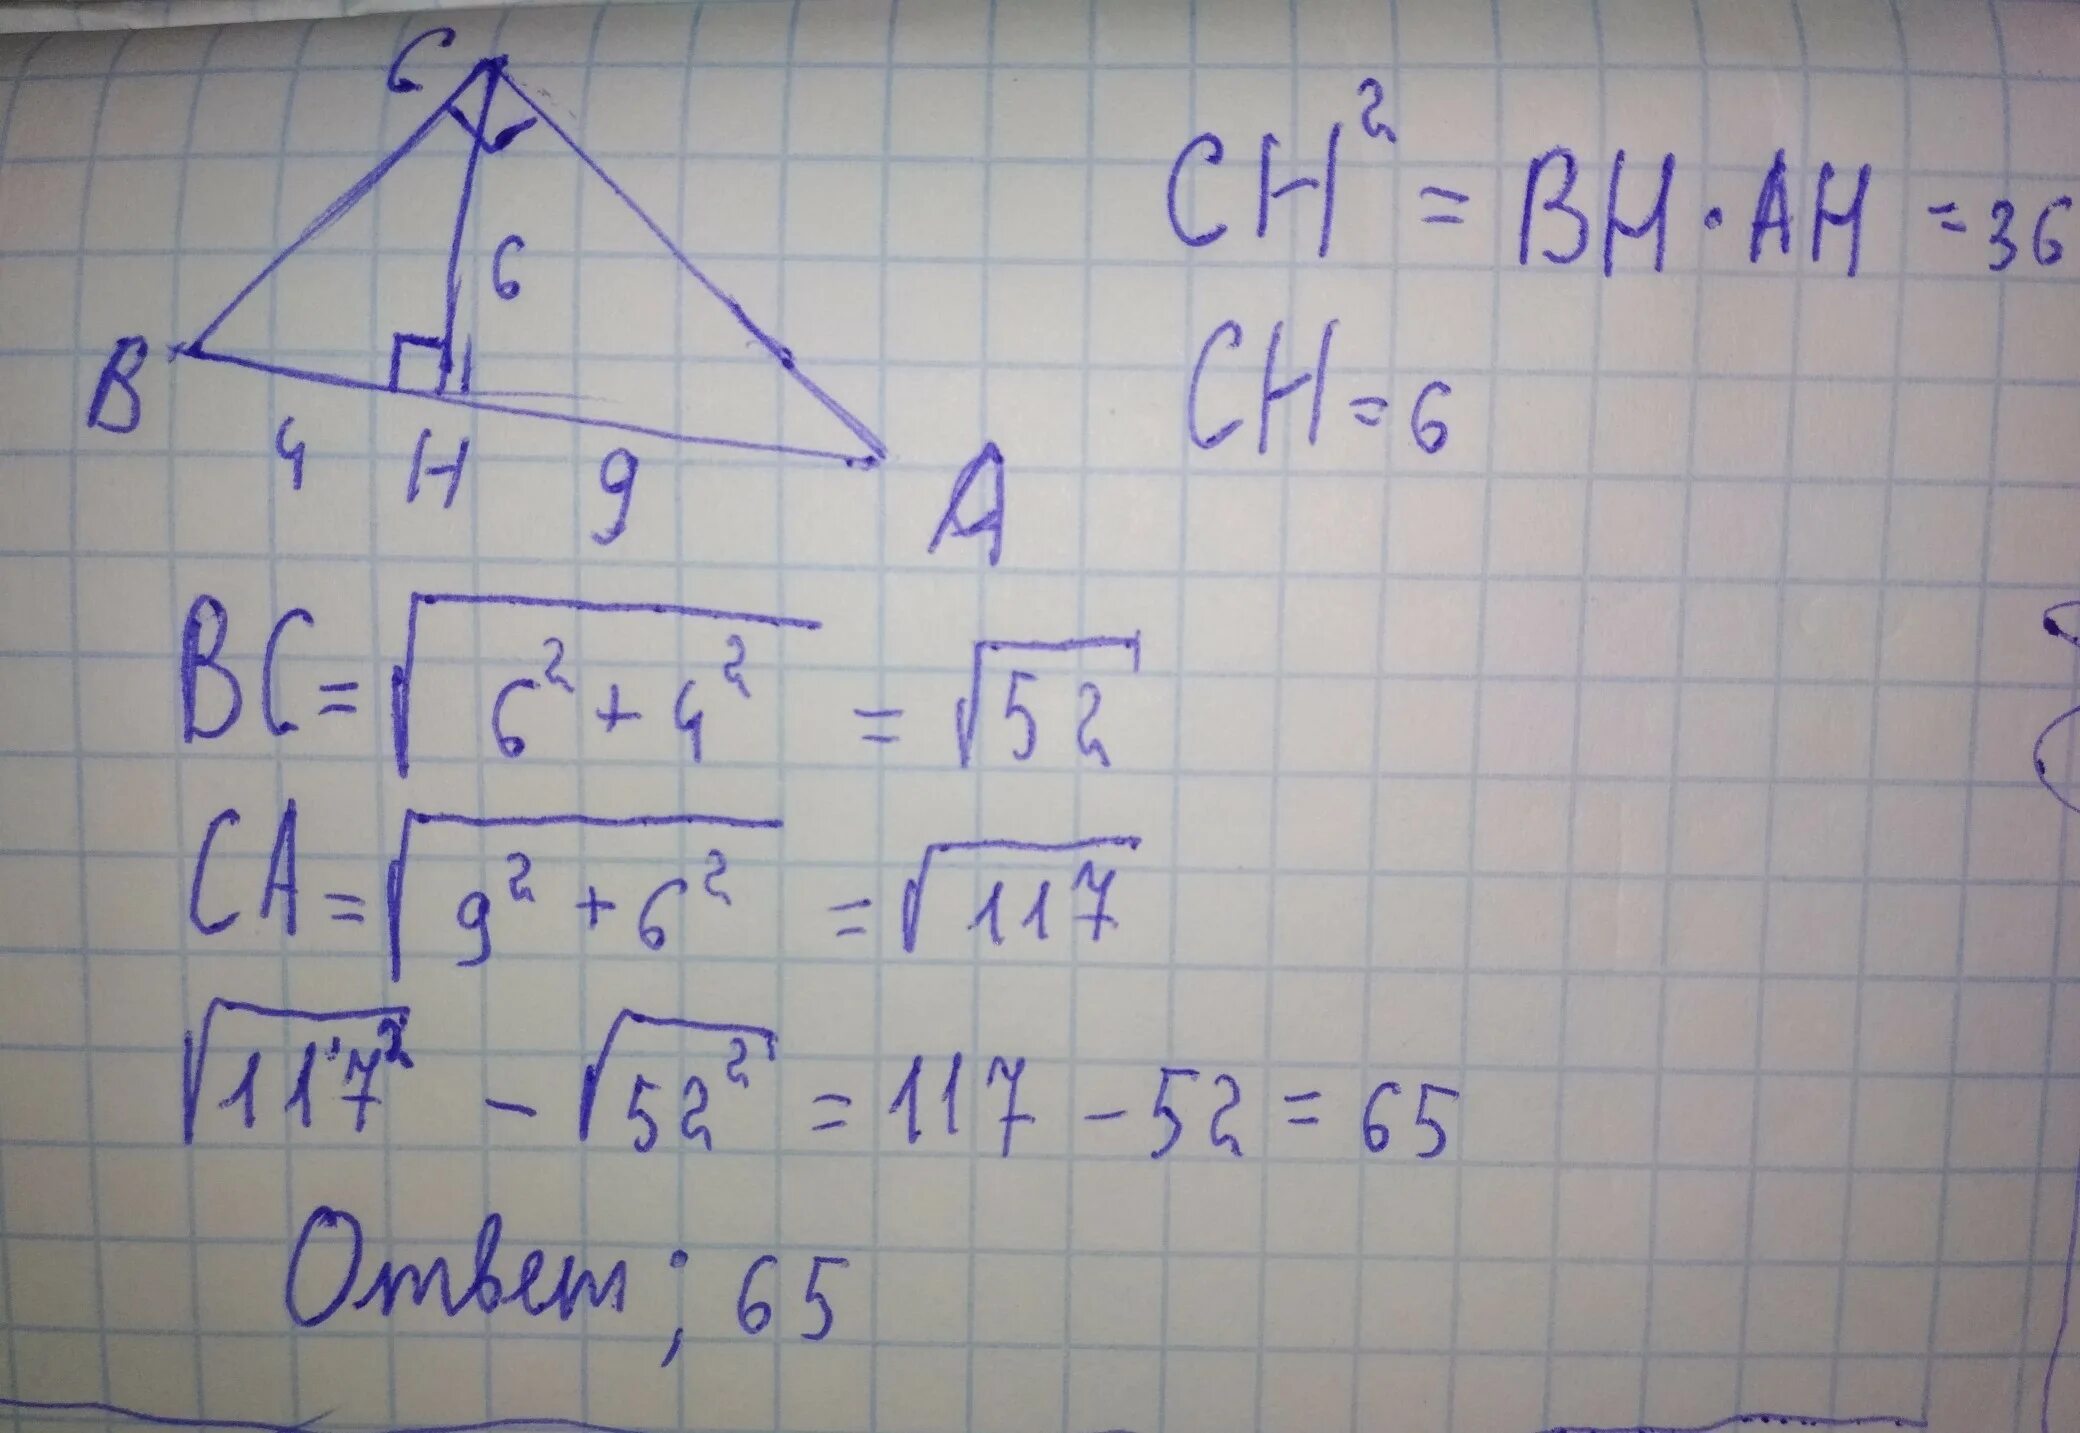 C
6
B
4 H 9
A
CH² = BH · AH = 36
CH = 6
BC = √6² + 4² = √52
CA = √9² + 6² = √117
√117² - √52² = 117 - 52 = 65
Ответ; 65